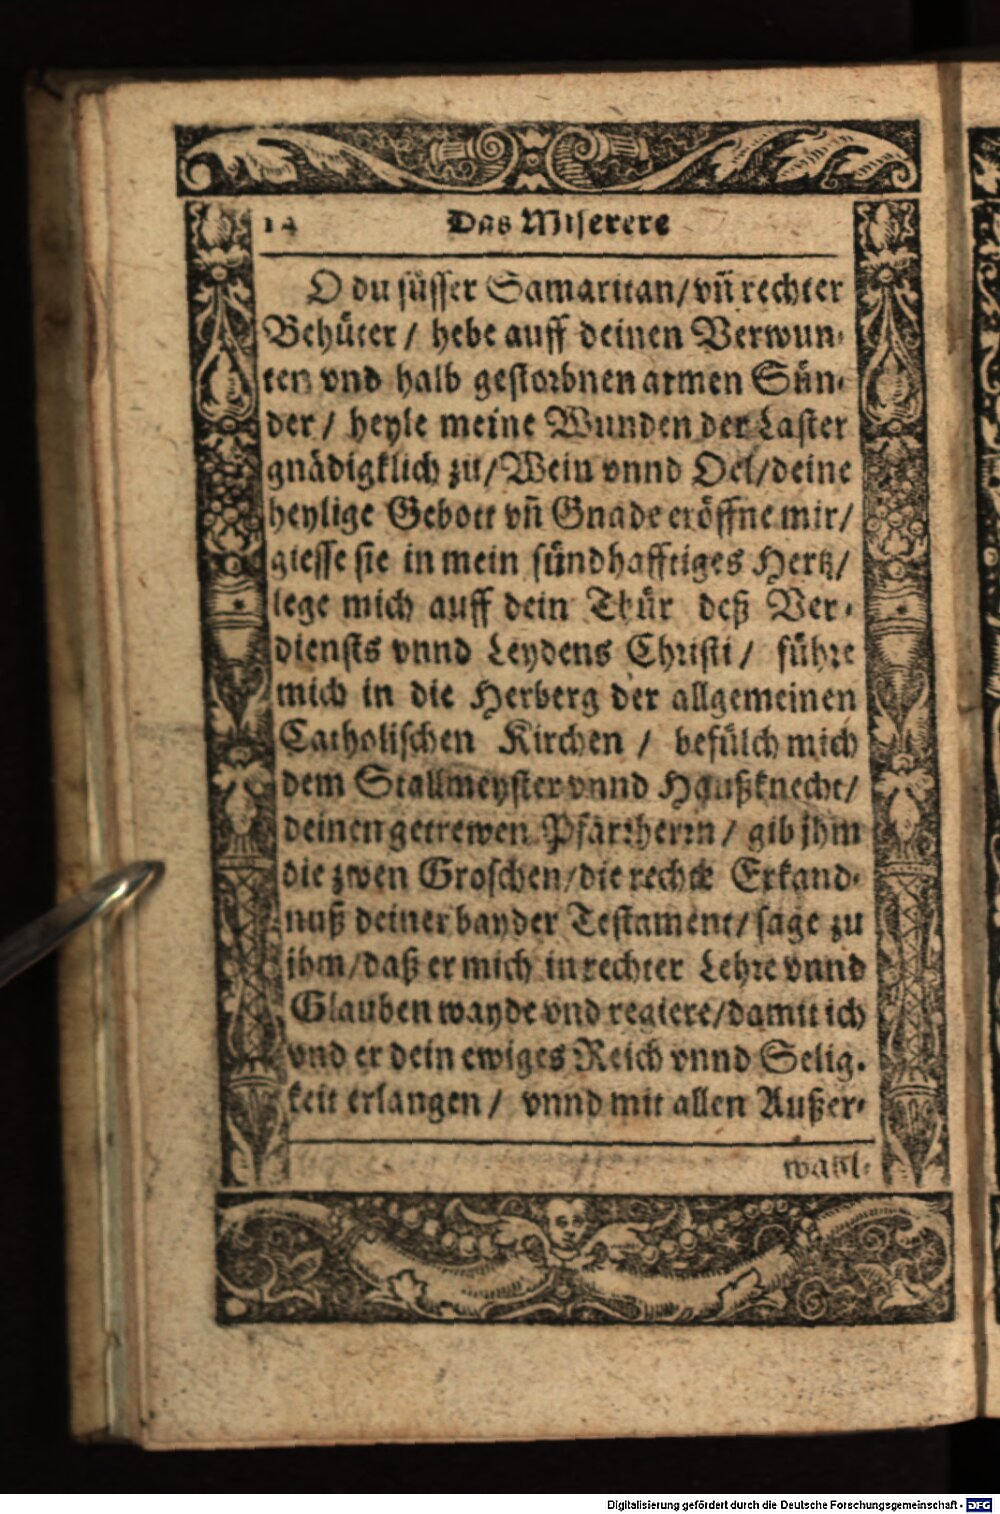 14 Das Miserere
O du süsser Samaritan/ vn̄ rechter
Behüter / hebe auff deinen Verwun-
ten vnd halb gestorbnen armen Sün-
der / heyle meine Wunden der Laster
gnädigklich zu/ Wein vnnd Oel/ deine
heylige Gebott vn̄ Gnade eröffne mir/
giesse sie in mein sündhafftiges Hertz/
lege mich auff dein Thür deß Ver-
diensts vnnd Leydens Christi / führe
mich in die Herberg der allgemeinen
Catholischen Kirchen / befülch mich
dem Stallmeyster vnnd Haußknecht/
deinen getrewen Pfarrherrn / gib jhm
die zwen Groschen/ die rechte Erkand-
nuß deiner bayder Testament/ sage zu
jhm/ daß er mich in rechter Lehre vnnd
Glauben wayde vnd regiere/ damit ich
vnd er dein ewiges Reich vnnd Selig-
keit erlangen / vnnd mit allen Außer-
wahl-
Digitalisierung gefördert durch die Deutsche Forschungsgemeinschaft - DFG